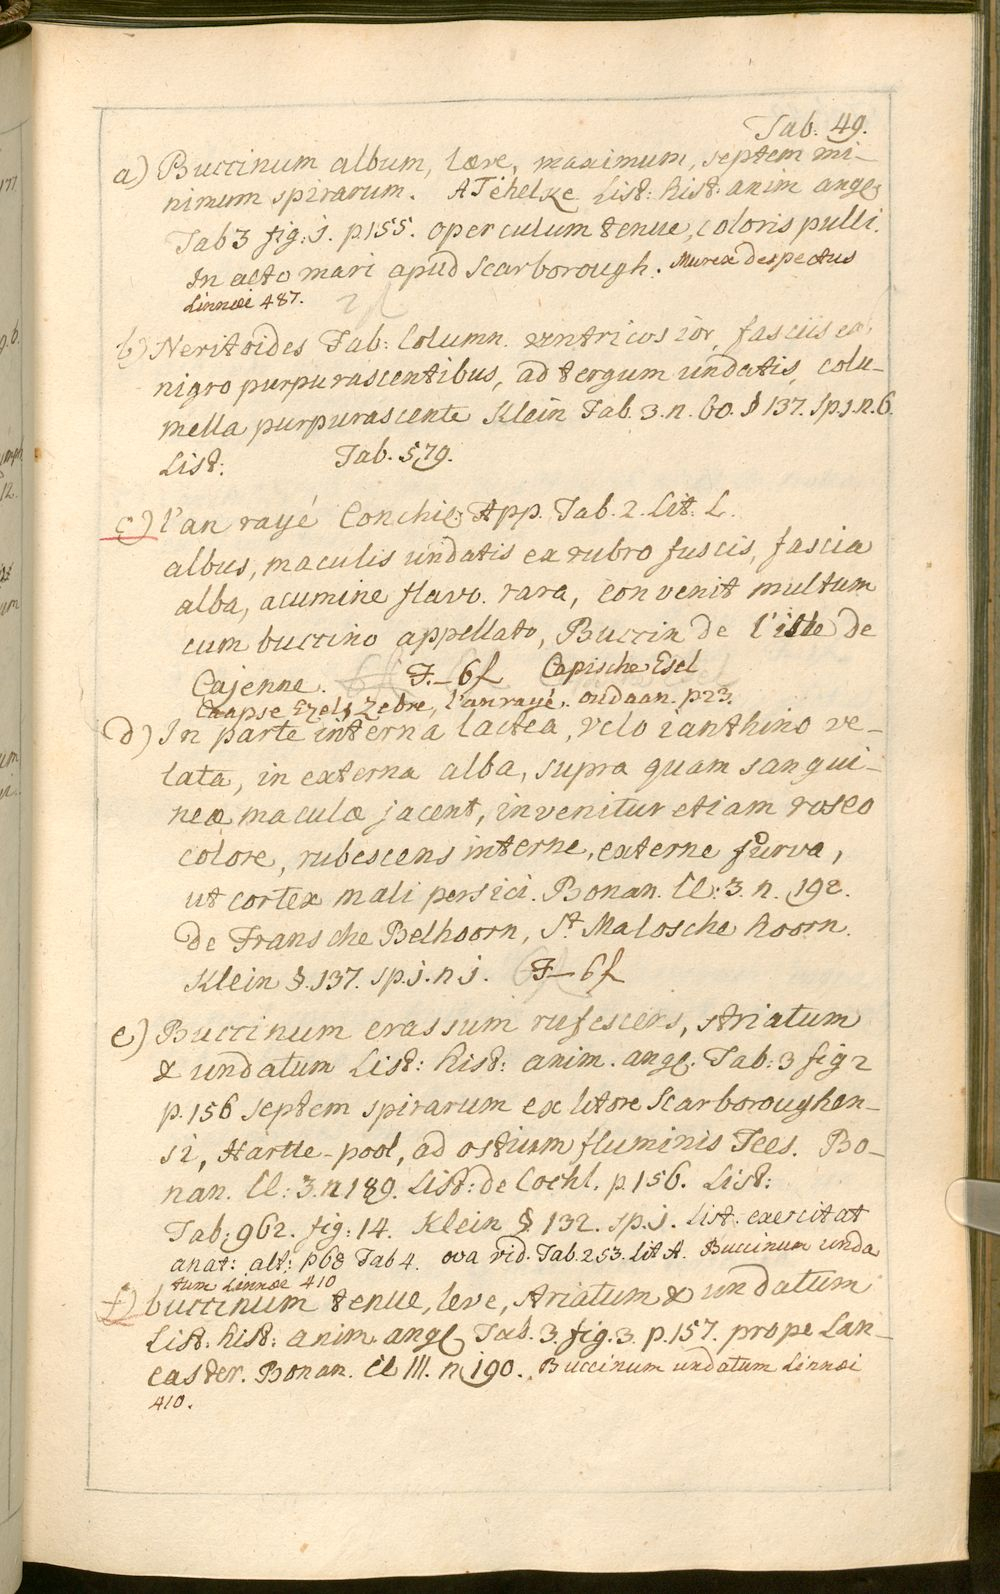 Tab. 49.
a) Buccinum album, læve, maximum, septem mi-
nimum spirarum. A Tehelke List: hist: anim angl
Tab 3 fig: j. p. 155. operculum tenue, coloris pulli.
In alto mari apud Scarborough. Murex despectus
Linnæi 487.
b) Neritoides Fab: Column. ventricosior, fasciis ex
nigro purpurascentibus, ad tergum undatis, colu-
mella purpurascente Klein Tab. 3. n. 60. § 137. sp. j. n. 6.
List: Tab. 579.
c) l'an rayé Conchil. App. Tab. 2. Lit: L.
albus, maculis undatis ex rubro fuscis, fascia
alba, acumine flavo. rara, convenit multum
cum buccino appellato, Buccin de l'isle de
Cajenne. F.-6f Capische Esel
Caapse Ezel, Zebre, l'an rayé. oudaan. p 23.
d) In parte interna lactea, velo ianthino ve-
lata, in externa alba, supra quam sangui-
neæ maculæ jacent, invenitur etiam roseo
colore, rubescens interne, externe furva,
ut cortex mali persici. Bonan. Cl: 3. n. 192.
de Fransche Belhoorn, St. Malosche hoorn.
Klein §. 137. sp. j. n j. F-6f
e) Buccinum crassum rufescens, striatum
& undatum List: hist: anim. angl. Tab: 3 fig 2
p. 156 septem spirarum ex litore Scarboroughen-
si, Hartle-pool, ad ostium fluminis Tees. Bo-
nan. Cl: 3. n 189. List: de Cochl. p. 156. List:
Tab: 962. fig: 14. Klein §. 132. sp. j. List: exercitat
anat: alt: p 68 Tab 4. ova vid. Tab. 253. Lit A. Buccinum unda
tum Linnæi 410
f) buccinum tenue, leve, striatum & undatum
List: hist: anim. angl Tab. 3. fig. 3. p. 157. prope Lan-
caster. Bonan. Cl III. n 190. Buccinum undatum Linnæi
410.